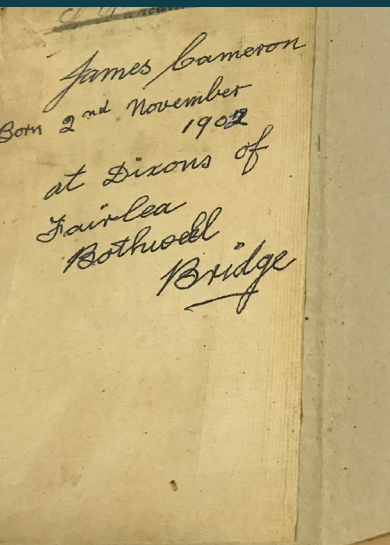 James Cameron
Born 2nd November
1902
at Dixons of
Fairlea
Bothwell
Bridge